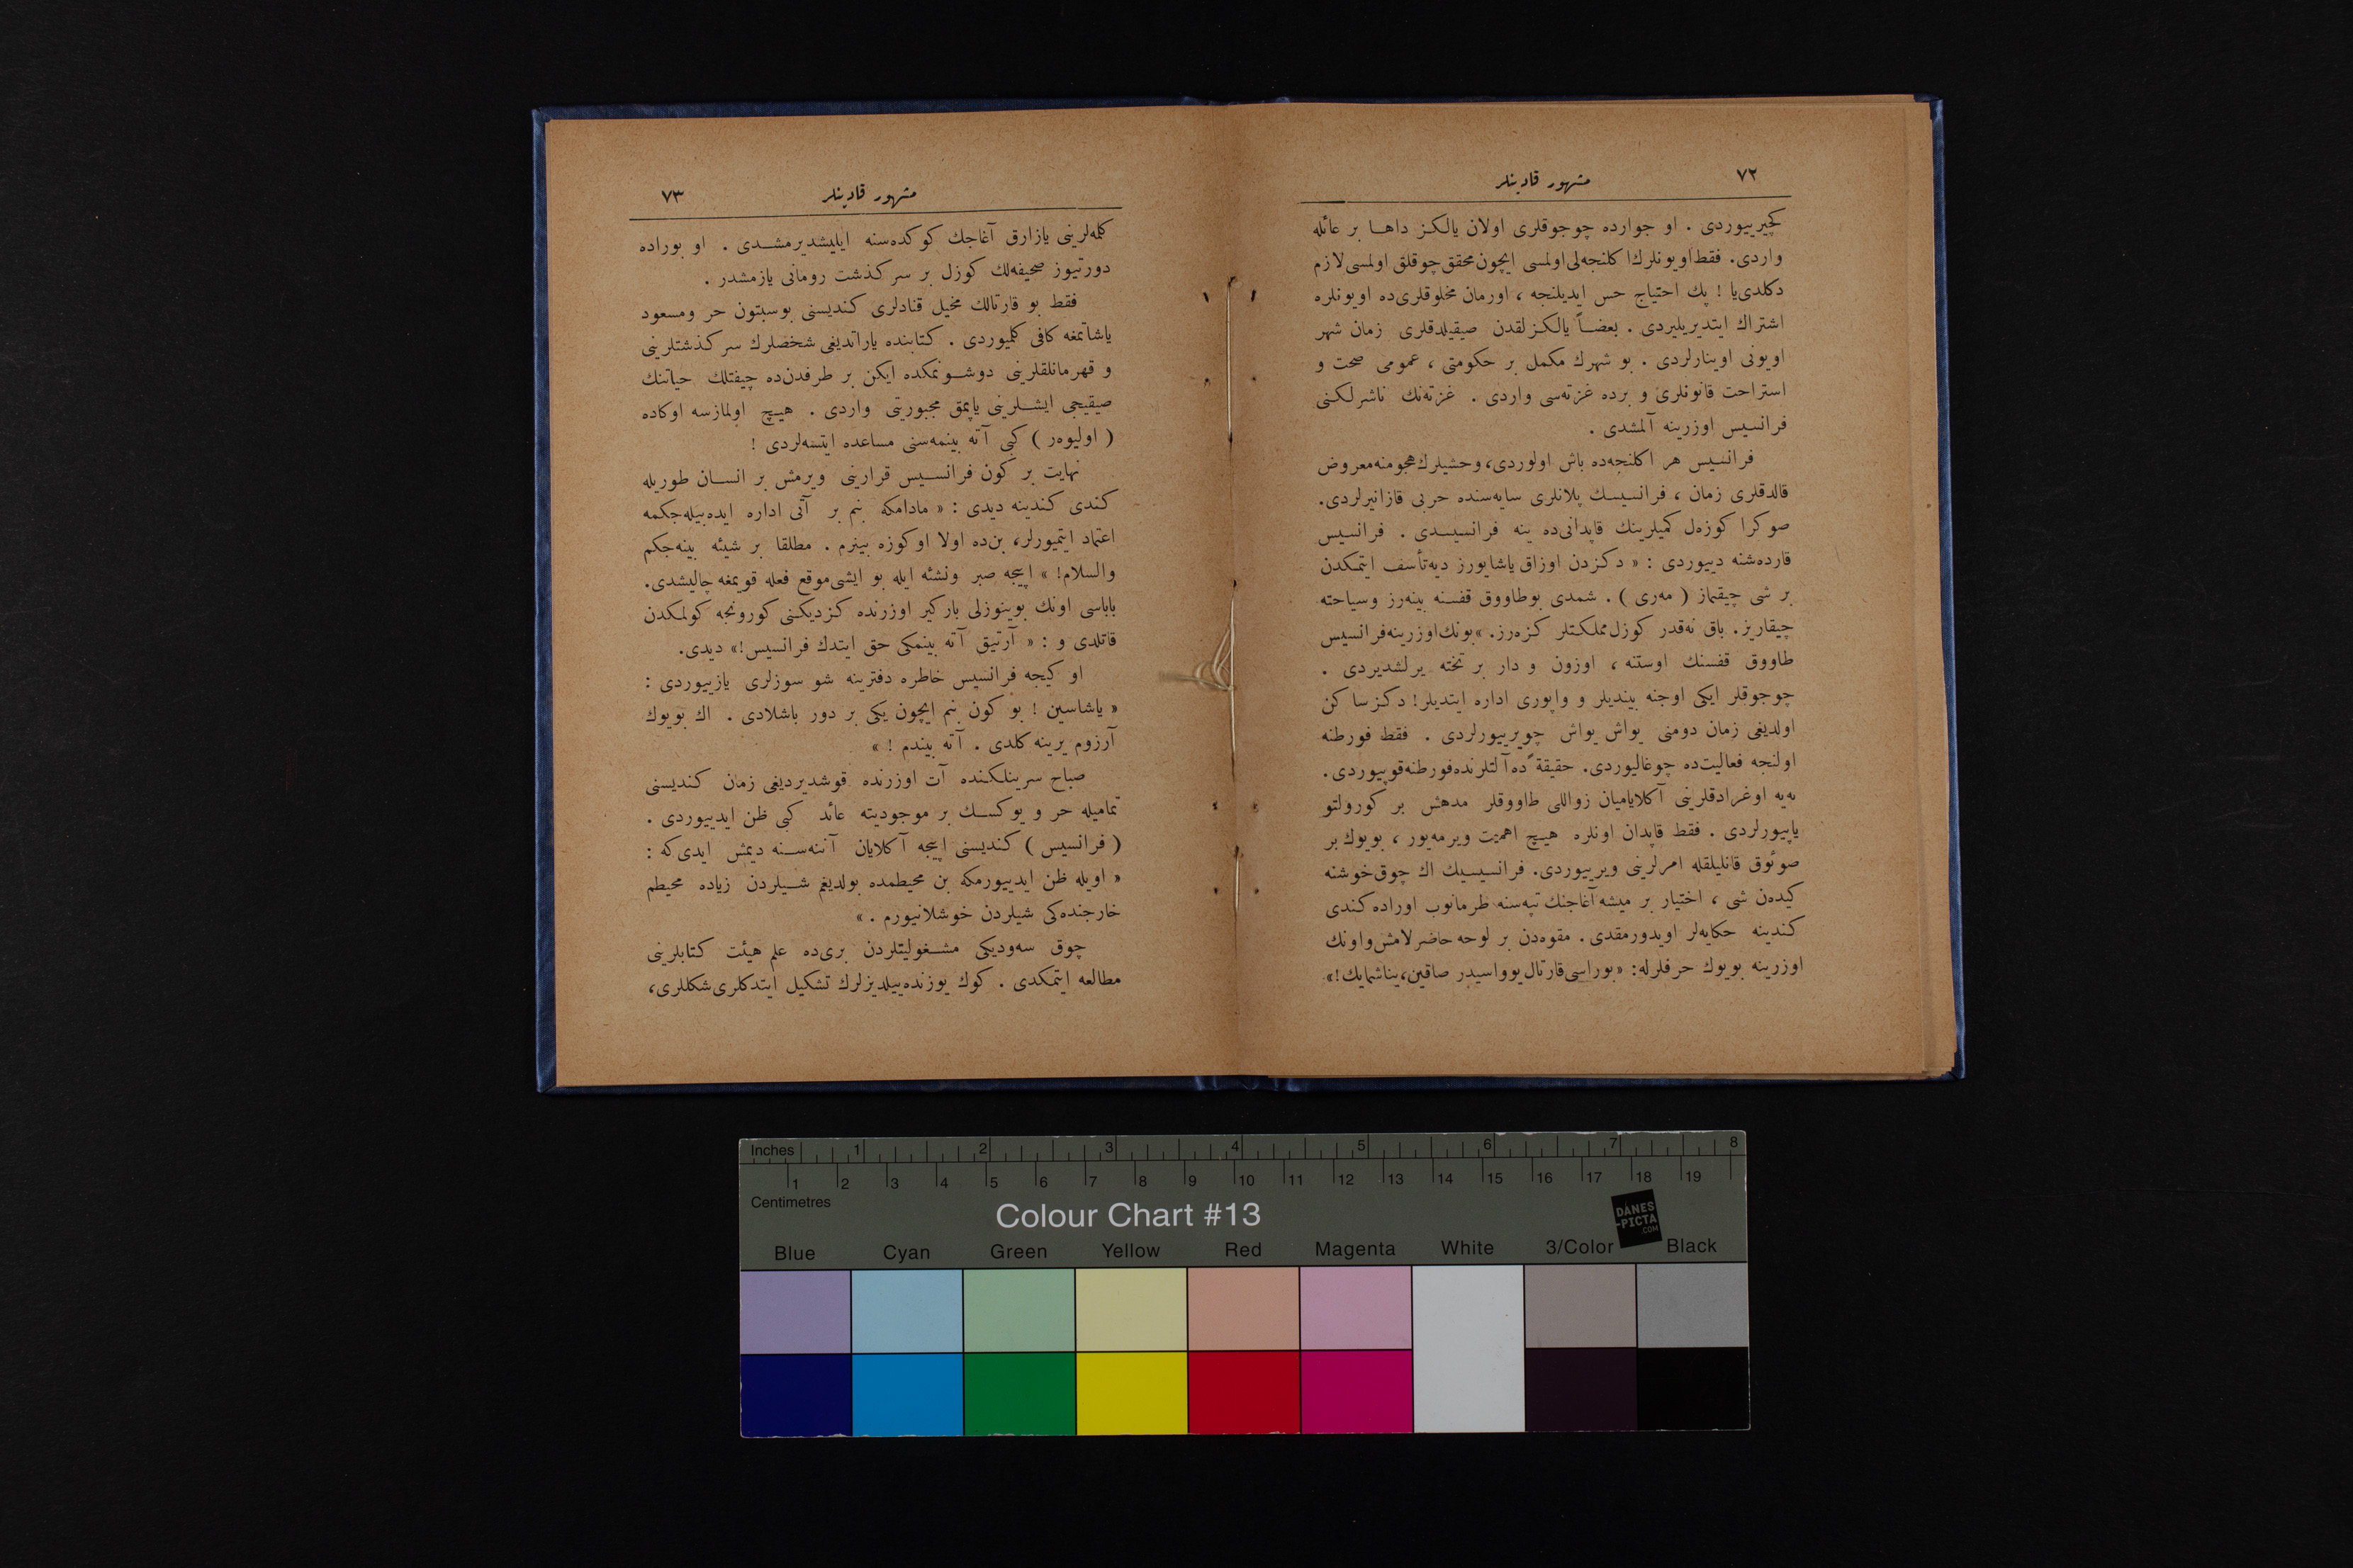 ٧٢
مشهور قادينلر
كچيرييوردى . او جوارده چوجوقلرى اولان يالكز داها بر عائله
واردى. فقط اويونلرك اكلنجه‌لى اولمسى ايچون محقق چوقلق اولمسى لازم
دكلدى‌يا ! پك احتياج حس ايديلنجه ، اورمان مخلوقلرى‌ده اويونلره
اشتراك ايتديريليردى . بعضاً يالكزلقدن صيقيلدقلرى زمان شهر
اويونى اوينارلردى . بو شهرك مكمل بر حكومتى ، عمومى صحت و
استراحت قانونلرى و برده غزته‌سى واردى . غزته‌نك ناشرلكنى
فرانسيس اوزرينه آلمشدى .
فرانسيس هر اكلنجه‌ده باش اولوردى، وحشيلرك هجومنه معروض
قالدقلرى زمان ، فرانسيسك پلانلرى سايه‌سنده حربى قازانيرلردى.
صوكرا كوزه‌ل كميلرينك قاپدانى‌ده ينه فرانسيسدى . فرانسيس
قارده‌شنه دييوردى : « دكزدن اوزاق ياشايورز ديه تأسف ايتمكدن
بر شى چيقماز ( مه‌رى ) . شمدى بو طاووق قفسنه بينه‌رز وسياحته
چيقاريز. باق نه‌قدر كوزل مملكتلر كزه‌رز. » بونك اوزرينه فرانسيس
طاووق قفسنك اوستنه ، اوزون و دار بر تخته يرلشديردى .
چوجوقلر ايكى اوجنه بينديلر و واپورى اداره ايتديلر! دكز ساكن
اولديغى زمان دومنى يواش يواش چويرييورلردى . فقط فورطنه
اولنجه فعاليت‌ده چوغاليوردى. حقيقةً ده آلتلرنده فورطنه قوپييوردى.
نه‌يه اوغرادقلرينى آكلاياميان زواللى طاووقلر مدهش بر كورولتو
ياپييورلردى . فقط قاپدان اونلره هيچ اهميت ويرمه‌يور ، بويوك بر
صوئوق قانليلقله امرلرينى ويرييوردى. فرانسيسك اك چوق خوشنه
كيده‌ن شى ، اختيار بر ميشه آغاجنك تپه‌سنه طرمانوب اوراده كندى
كندينه حكايه‌لر اويدورمقدى. مقوه‌دن بر لوحه حاضرلامش واونك
اوزرينه بويوك حرفلرله: « بوراسى قارتال يوواسيدر صاقين، يناشمايك!»
٧٣
مشهور قادينلر
كلمه‌لرينى يازارق آغاجك كوكده‌سنه ايليشديرمشدى . او بوراده
دورتيوز صحيفه‌لك كوزل بر سركذشت رومانى يازمشدر .
فقط بو قارتالك مخيل قنادلرى كنديسنى بوسبتون حر ومسعود
ياشاتمغه كافى كلميوردى . كتابنده ياراتديغى شخصلرك سركذشتلرينى
و قهرمانلقلرينى دوشونمكده ايكن بر طرفدن‌ده چيفتلك حياتنك
صيقيجى ايشلرينى ياپمق مجبوريتى واردى . هيچ اولمازسه اوكاده
( اوليوه‌ر ) كبى آته بينمه‌سنى مساعده ايتسه‌لردى !
نهايت بر كون فرانسيس قرارينى ويرمش بر انسان طوريله
كندى كندينه ديدى : « مادامكه بنم بر آتى اداره ايده‌بيله‌جكمه
اعتماد ايتميورلر، بن‌ده اولا اوكوزه بينرم . مطلقا بر شيئه بينه‌جكم
والسلام! » ايبجه صبر ونشئه ايله بو ايشى موقع فعله قويمغه چاليشدى.
باباسى اونك بوينوزلى باركير اوزرنده كزديكنى كورونجه كولمكدن
قاتلدى و : « آرتيق آته بينمكى حق ايتدك فرانسيس!» ديدى.
او كيجه فرانسيس خاطره دفترينه شو سوزلرى يازييوردى :
« ياشاسين ! بو كون بنم ايچون يكى بر دور باشلادى . اك بويوك
آرزوم يرينه كلدى . آته بيندم ! »
صباح سرينلكنده آت اوزرنده قوشديرديغى زمان كنديسنى
تماميله حر و يوكسك بر موجوديته عائد كبى ظن ايدييوردى .
( فرانسيس ) كنديسنى ايبجه آكلايان آننه‌سنه ديمش ايدى كه :
« اويله ظن ايدييورمكه بن محيطمده بولديغم شيلردن زياده محيطم
خارجنده‌كى شيلردن خوشلانيورم . »
چوق سه‌وديكى مشغوليتلردن برى‌ده علم هيئت كتابلرينى
مطالعه ايتمكدى . كوك يوزنده ييلديزلرك تشكيل ايتدكلرى شكللرى،
Inches 1 2 3 4 5 6 7 8
1 2 3 4 5 6 7 8 9 10 11 12 13 14 15 16 17 18 19
Centimetres
Colour Chart #13
DANES
-PICTA
.COM
Blue Cyan Green Yellow Red Magenta White 3/Color Black